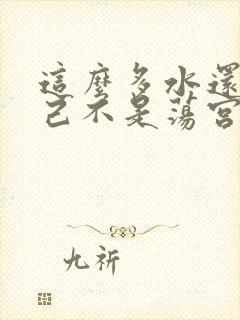 這麼多水還
己不是蕩宮
九祈